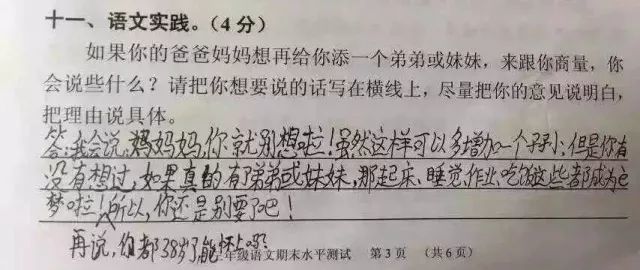 十一、语文实践。(4分)
如果你的爸爸妈妈想再给你添一个弟弟或妹妹，来跟你商量，你
会说些什么？请把你想要说的话写在横线上，尽量把你的意见说明白，
把理由说具体。
答：我会说：妈妈妈，你就别想啦！虽然这样可以多增加一个孩子，但是你有
没有想过，如果真的有弟弟或妹妹，那起床、睡觉、作业、吃饭这些都成为
梦啦！所以，你还是别要了吧！
再说，你都38岁了能怀上吗？
年级语文期末水平测试 第3页 （共6页）